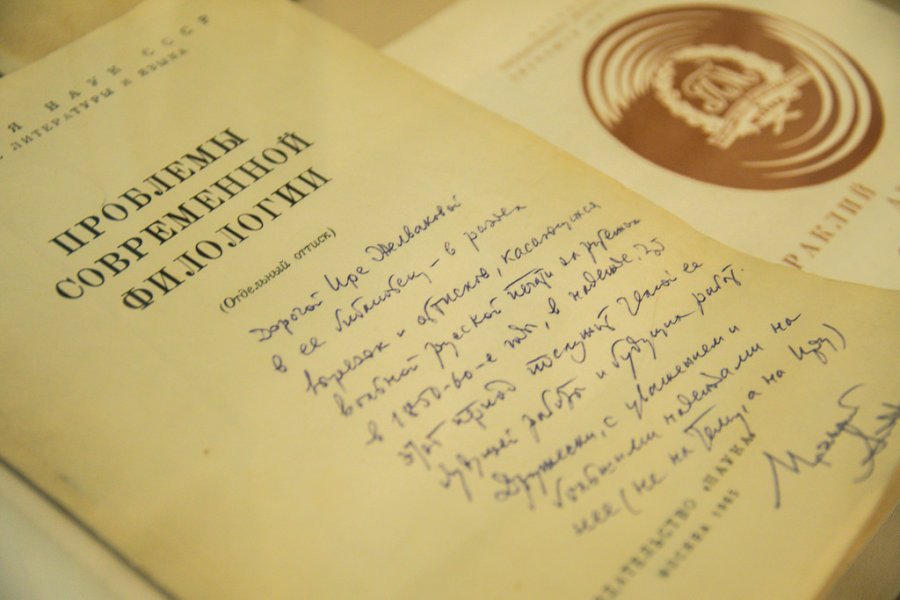 Я НАУК СССР
ЛИТЕРАТУРЫ И ЯЗЫКА
ПРОБЛЕМЫ
СОВРЕМЕННОЙ
ФИЛОЛОГИИ
(Отдельный оттиск)
Дорогой Ире Желваковой
в ее библиотеку – в раздел
вырезок и оттисков, касающихся
вольной русской печати за рубежом
в 1850-60-е годы, в надежде, что
этот
работы и будущих работ.
Дружески, с уважением и
большими надеждами на
нее (не на Тему, а на Иру)
ЗДАТЕЛЬСТВО «НАУКА»
МОСКВА 1965
РАКЛИЙ